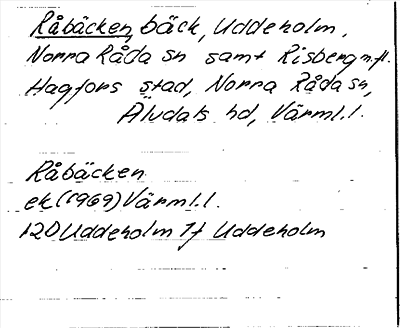 Råbäcken, bäck, Uddeholm,
Norra Råda sn samt Risberg m.fl.
Hagfors stad, Norra Råda sn,
Älvdals hd, Värml.l.
Råbäcken
ek (1969) Värml.l.
12D Uddeholm 7f Uddeholm